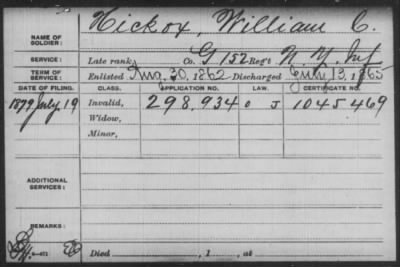 NAME OF SOLDIER: Hickox, William C.
SERVICE: Late rank, Co. G 152 Reg't N. Y. Inf
TERM OF SERVICE: Enlisted Aug. 30, 1862 Discharged July 13, 1865
DATE OF FILING. CLASS. APPLICATION NO. LAW. CERTIFICATE NO.
1879 July 19 Invalid, 298,934 1045469
Widow,
Minor,
ADDITIONAL SERVICES:
REMARKS:
Died , 1 , at